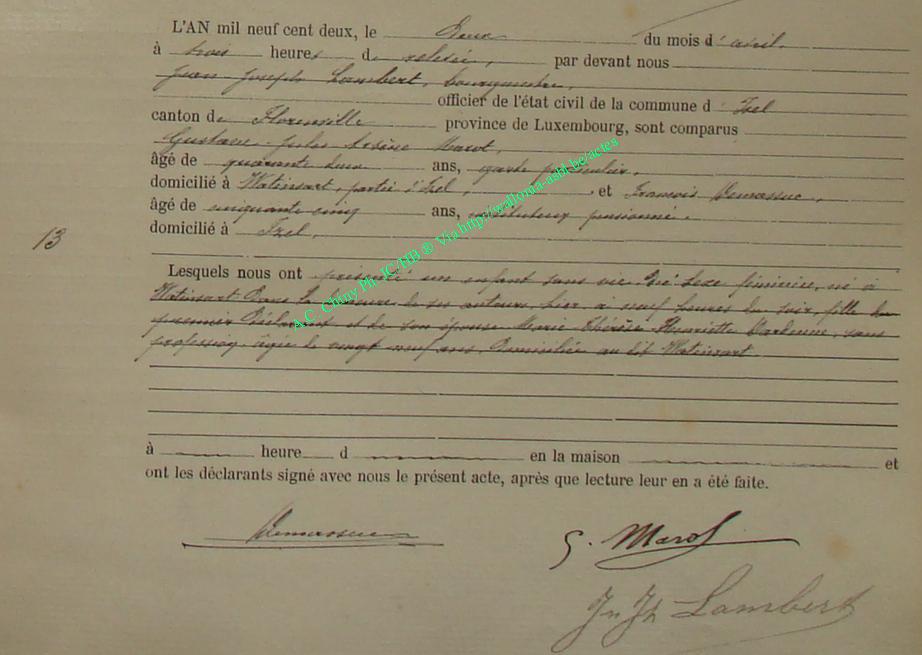 L'AN mil neuf cent deux, le Deux du mois d'avril.
à trois heures de relevée, par devant nous
Jean Joseph Lambert, bourgmestre,
officier de l'état civil de la commune d'Izel
canton de Florenville province de Luxembourg, sont comparus
Gustave Jules Arsène Marot,
âgé de quarante deux ans, garde particulier,
domicilié à Watinsart, partie d'Izel, et François Demasuc,
âgé de cinquante cinq ans, instituteur pensionné,
domicilié à Izel,
13
Lesquels nous ont présenté un enfant sans vie du sexe féminin, né à
Watinsart dans la demeure de ses auteurs, hier à neuf heures du soir, fille du
premier déclarant et de son épouse Marie Thérèse Henriette, sans
profession, âgée de vingt neuf ans, domiciliée au dit Watinsart
à heure d en la maison et
ont les déclarants signé avec nous le présent acte, après que lecture leur en a été faite.
G. Marot
Jn Jh Lambert
A.C. Chiny Ph. JC/HB ® Via http://walloma-asbl-be/actes